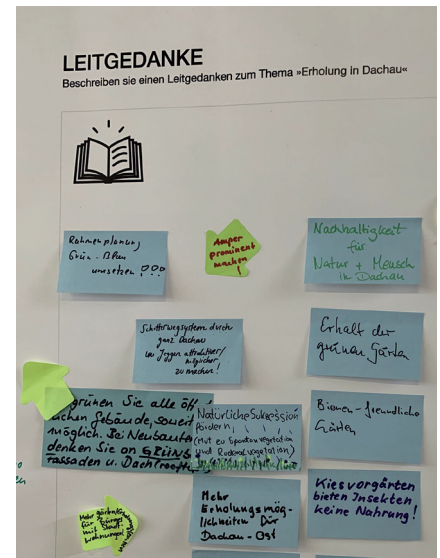 LEITGEDANKE
Beschreiben sie einen Leitgedanken zum Thema »Erholung in Dachau«
Rahmenplanung
Grün-Blau
umsetzen !!!
Amper
prominent
machen
!
Nachhaltigkeit
für
Natur + Mensch
in Dachau
durch
ganz Dachau
um Joggen attraktiver/
möglicher
zu machen!
Erhalt der
grünen Gärten
grünen Sie alle öff
lichen Gebäude, soweit
möglich. Bei Neubauten
denken Sie an GRÜNE
Fassaden u. Dach
Natürliche Sukzession
fördern
(Mut zu Spontanvegetation
und Ruderalvegetation)
Bienen-freundliche
Gärten
Mehr
für
mit Stadt-
wohnungen
Mehr
Erholungsmög-
lichkeiten für
Dachau-Ost
Kiesvorgärten
bieten Insekten
keine Nahrung!